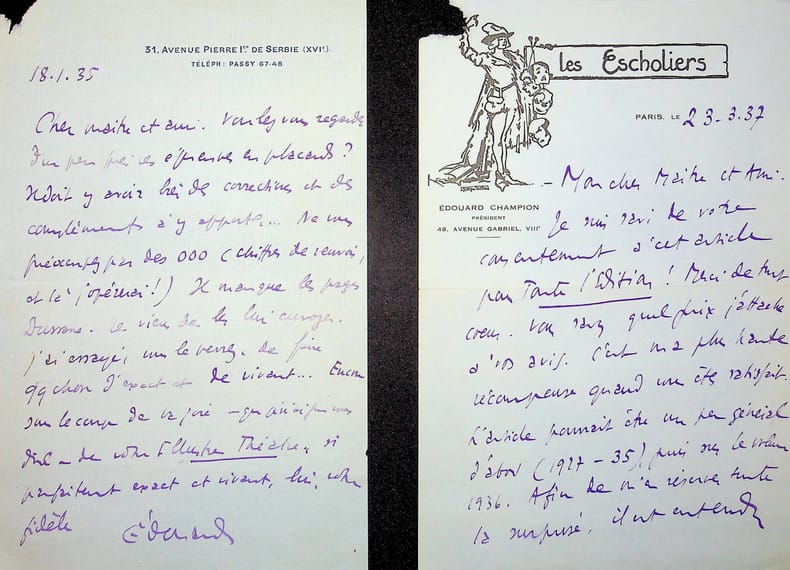 31, AVENUE PIERRE Iᴱᴿ DE SERBIE (XVIᵉ)
TÉLÉPH: PASSY 67-48
18.1.35
Cher maître et ami. Voulez vous regarder
d'un peu près ces épreuves en placards?
Il doit y avoir des corrections et des
compléments à y apporter... Ne vous
préoccupez pas des 000 (chiffres de renvoi,
et là j'opérerai!) Il manque les pages
Dussane. Je viens de les lui envoyer.
J'ai essayé, vous le verrez, de faire
qq chose d'exact et de vivant... Encore
sous le coup de la joie – que puis-je vous
dire – de votre Illustre Théâtre, si
parfaitement exact et vivant, lui, votre
fidèle
Édouard
les Escholiers
PARIS, LE 23-3.37
ÉDOUARD CHAMPION
PRÉSIDENT
48, AVENUE GABRIEL, VIIIᵉ
- Mon cher Maître et Ami.
Je suis ravi de votre
consentement à cet article
pour Toute l'Edition! Merci de tout
coeur. Vous savez quel prix j'attache
à vos avis. C'est ma plus haute
récompense quand vous êtes satisfait.
L'article pourrait être un peu général
d'abord (1927-35) puis sur le volume
1936. Afin de m'en réserver toute
la surprise, il est entendu